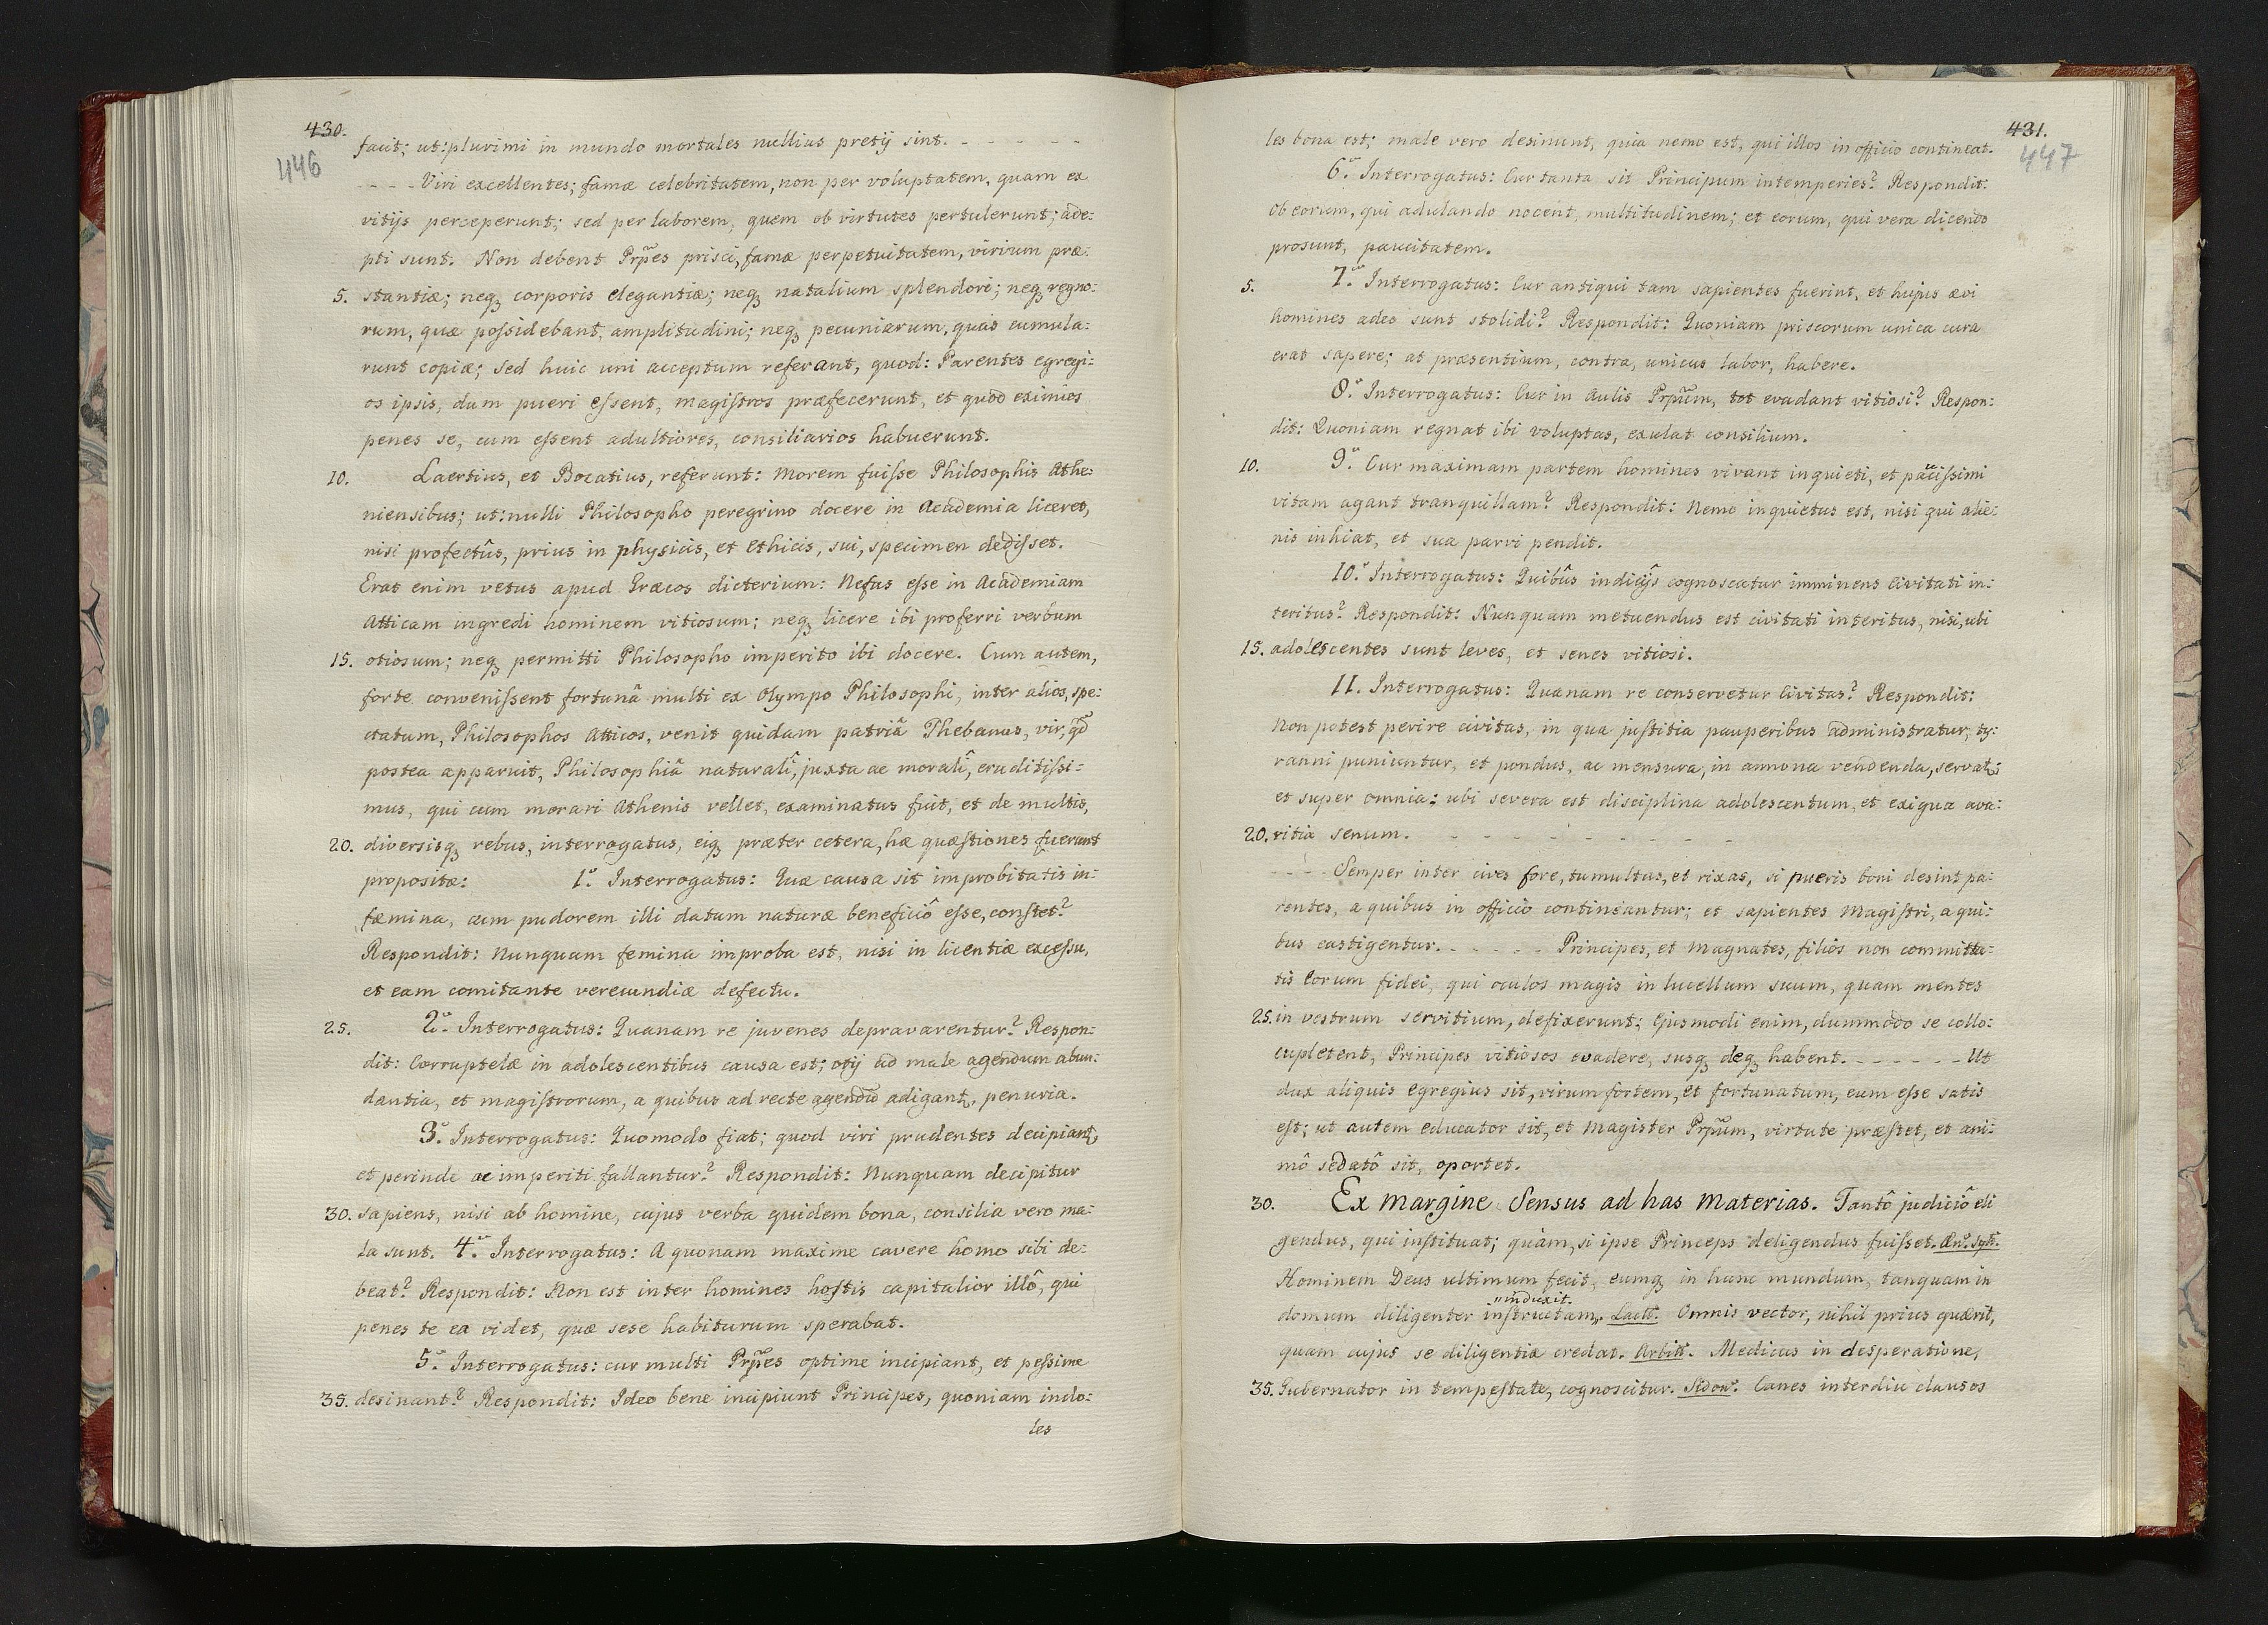 430.
446
facit; ut: plurimi in mundo mortales nullius pretij sint. - - - - - -
- - - - Viri excellentes; famæ celebritatem, non per voluptatem, quam ex
vitijs perceperunt; sed per laborem, quem ob virtutes pertulerunt; ade:
pti sunt. Non debent Prp̃es prisci, famæ perpetuitatem, virium præ:
5. stantiæ; neqꝫ corporis elegantiæ; neqꝫ natalium splendori; neqꝫ regno:
rum, quæ poſsidebant, amplitudini; neqꝫ pecuniarum, quas cumula:
runt copiæ; sed huic uni acceptum referant, quod: Parentes egregi:
os ipsis, dum pueri eſsent, magiſtros præfecerunt, et quod eximios
penes se, cum eſsent adultiores, consiliarios habuerunt.
10. Laertius, et Bocatius, referunt: Morem fuiſse Philosophis Athe:
niensibus; ut: nulli Philosopho peregrino docere in Academia liceret,
nisi profectûs, prius in physicis, et Ethicis, sui, specimen dediſset.
Erat enim vetus apud Græcos dicterium: Nefas eſse in Academiam
Atticam ingredi hominem vitiosum; neqꝫ licere ibi proferri verbum
15. otiosum; neqꝫ permitti Philosopho imperito ibi docere. Cum autem,
forte conveniſsent fortunâ multi ex Olympo Philosophi, inter alios, spe:
ctatum, Philosophos Atticos, venit quidam patriâ Thebanus, vir, qd̃
postea apparuit, Philosophiâ naturalî, juxta ac moralî, eruditiſsi:
mus, qui cum morari Athenis vellet, examinatus fuit, et de multis,
20. diversisqꝫ rebus, interrogatus, eiqꝫ præter cetera, hæ quæſtiones fuerunt
propositæ: 1.º Interrogatus: Quæ causa sit improbitatis in:
fæmina, cum pudorem illi datum naturæ beneficiô eſse, conſtet?
Respondit: Nunquam femina improba est, nisi in licentiæ exceſsu,
et eam comitante verecundiæ defectu.
25. 2.º Interrogatus: Quanam re juvenes depravarentur? Respon:
dit: Corruptelæ in adolescentibus causa est; otij ad male agendum abun:
dantia, et magiſtrorum, a quibus ad recte agendũ adigantꝫ, penuria.
3.º Interrogatus: Quomodo fiat; quod viri prudentes decipiantꝫ
et perinde ac imperiti fallantur? Respondit: Nunquam decipitur
30. sapiens, nisi ab homine, cujus verba quidem bona, consilia vero ma:
la sunt. 4.º Interrogatus: A quonam maxime cavere homo sibi de:
beat? Respondit: Non est inter homines hoſtis capitalior illô, qui
penes te ea videt, quæ sese habiturum sperabat.
5.º Interrogatus: cur multi Prp̃es optime incipiant, et peſsime
35. desinant? Respondit: Ideo bene incipiunt Principes, quoniam indo:
les
431.
447
les bona est; male vero desinunt, quia nemo est, qui illos in officio contineat.
6.º Interrogatus: Cur tanta sit Principum intemperies? Respondit:
Ob eorum, qui adulando nocent, multitudinem; et eorum, qui vera dicendo
prosunt, paucitatem.
5. 7.º Interrogatus: Cur antiqui tam sapientes fuerint, et hujus ævi
homines adeo sunt stolidi? Respondit: Quoniam priscorum unica cura
erat sapere; at præsentium, contra, unicus labor, habere.
8.º Interrogatus: Cur in Aulis Prp̃um, tot evadant vitiosi? Respon:
dit: Quoniam regnat ibi voluptas, exulat consilium.
10. 9.º Cur maximam partem homines vivant inquieti, et pauciſsimi
vitam agant tranquillam? Respondit: Nemo inquietus est, nisi qui alie:
nis inhiat, et sua parvi pendit.
10.º Interrogatus: Quibûs indicijs cognoscatur imminens Civitati in:
teritus? Respondit: Nunquam metuendus est civitati interitus, nisi, ubi
15. adolescentes sunt leves, et senes vitiosi.
11. Interrogatus: Quanam re conservetur Civitas? Respondit:
Non potest perire civitas, in qua juſtitia pauperibus administratur, ty:
ranni puniuntur, et pondus, ac mensura, in annona vendenda, servatꝫ;
et super omnia: ubi severa est disciplina adolescentum, et exigua ava:
20. ritia senum. - - - - - - - - -
- - - - Semper inter cives fore, tumultus, et rixas, si pueris boni desint pa:
rentes, a quibus in officio contineantur; et sapientes Magiſtri, a qui:
bus castigentur. - - - - - - Principes, et Magnates, filios non committa:
tis Eorum fidei, qui oculos magis in lucellum suum, quam mentes
25. in vestrum servitium, defixerunt; Ejusmodi enim, dummodo se collo:
cupletent, Principes vitiosos evadere, susqꝫ deqꝫ habent. - - - - - - Ut
dux aliquis egregius sit, virum fortem, et fortunatum, eum eſse satis
eſt; ut autem educator sit, et Magister Prp̃um, virtute præſtet, et ani:
mô sedatô sit, oportet.
30. Ex Margine Sensus ad has Materias. Tantô judiciô eli
gendus, qui inſtituat; quàm, si ipse Princeps deligendus fuiſset. Æn. Sylv.
Hominem Deus ultimum fecit, eumqꝫ in hunc mundum, tanquam in
domum diligenter inſtructam, induxit. Lactt. Omnis vector, nihil prius quærit,
quam cujus se diligentiæ credat. Arbitt. Medicus in desperatione,
35. Gubernator in tempeſtate, cognoscitur. Sidon. Canes interdiu clausos